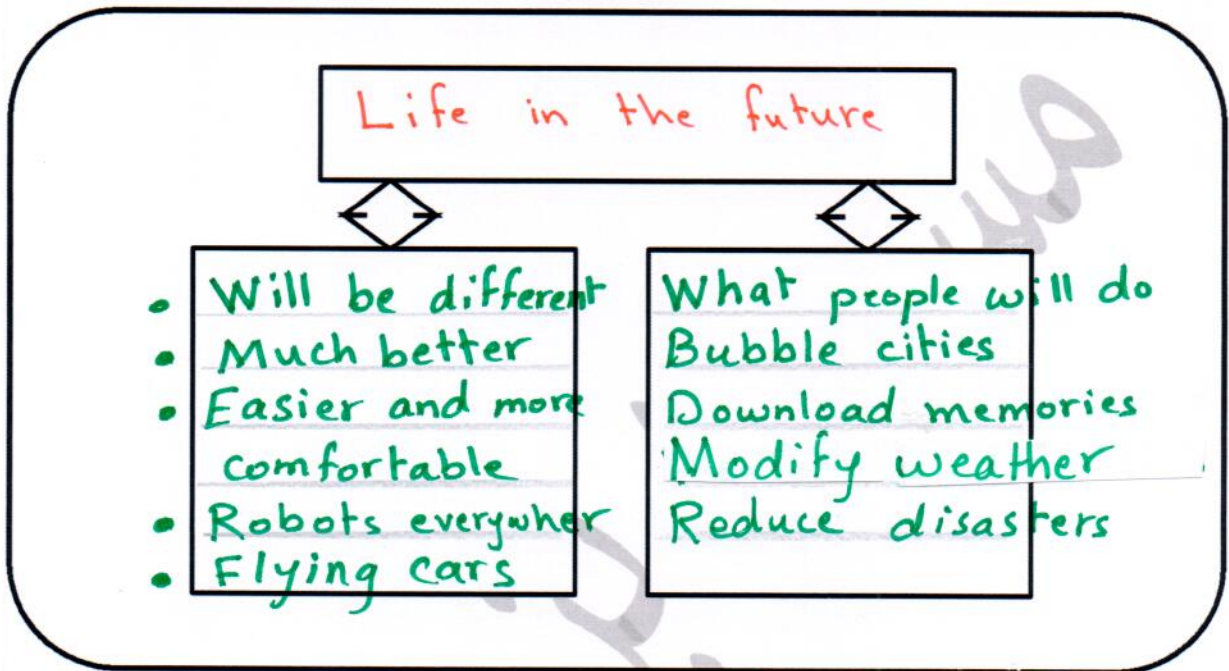 Life in the future
• Will be different
• Much better
• Easier and more
comfortable
• Robots everywher
• Flying cars
What people will do
Bubble cities
Download memories
Modify weather
Reduce disasters